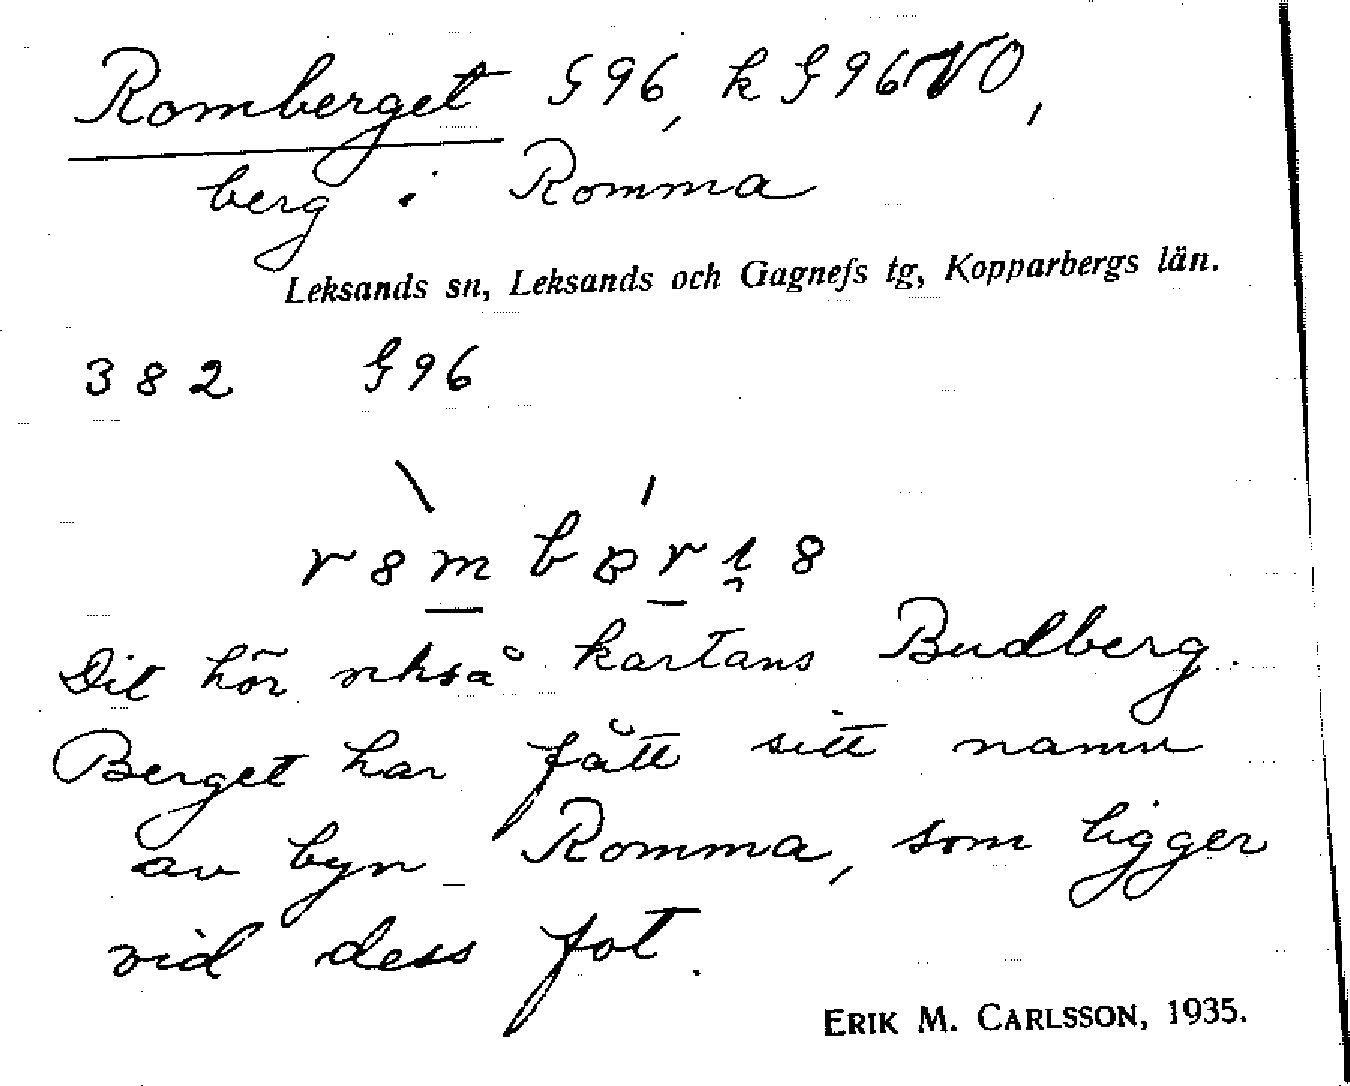 Romberget G96, k G96 NO,
berg i Romma
Leksands sn, Leksands och Gagnefs tg, Kopparbergs län.
382 G96
Dit hör också kartans Budberg.
Berget har fått sitt namn
av byn Romma, som ligger
vid dess fot.
ERIK M. CARLSSON, 1935.